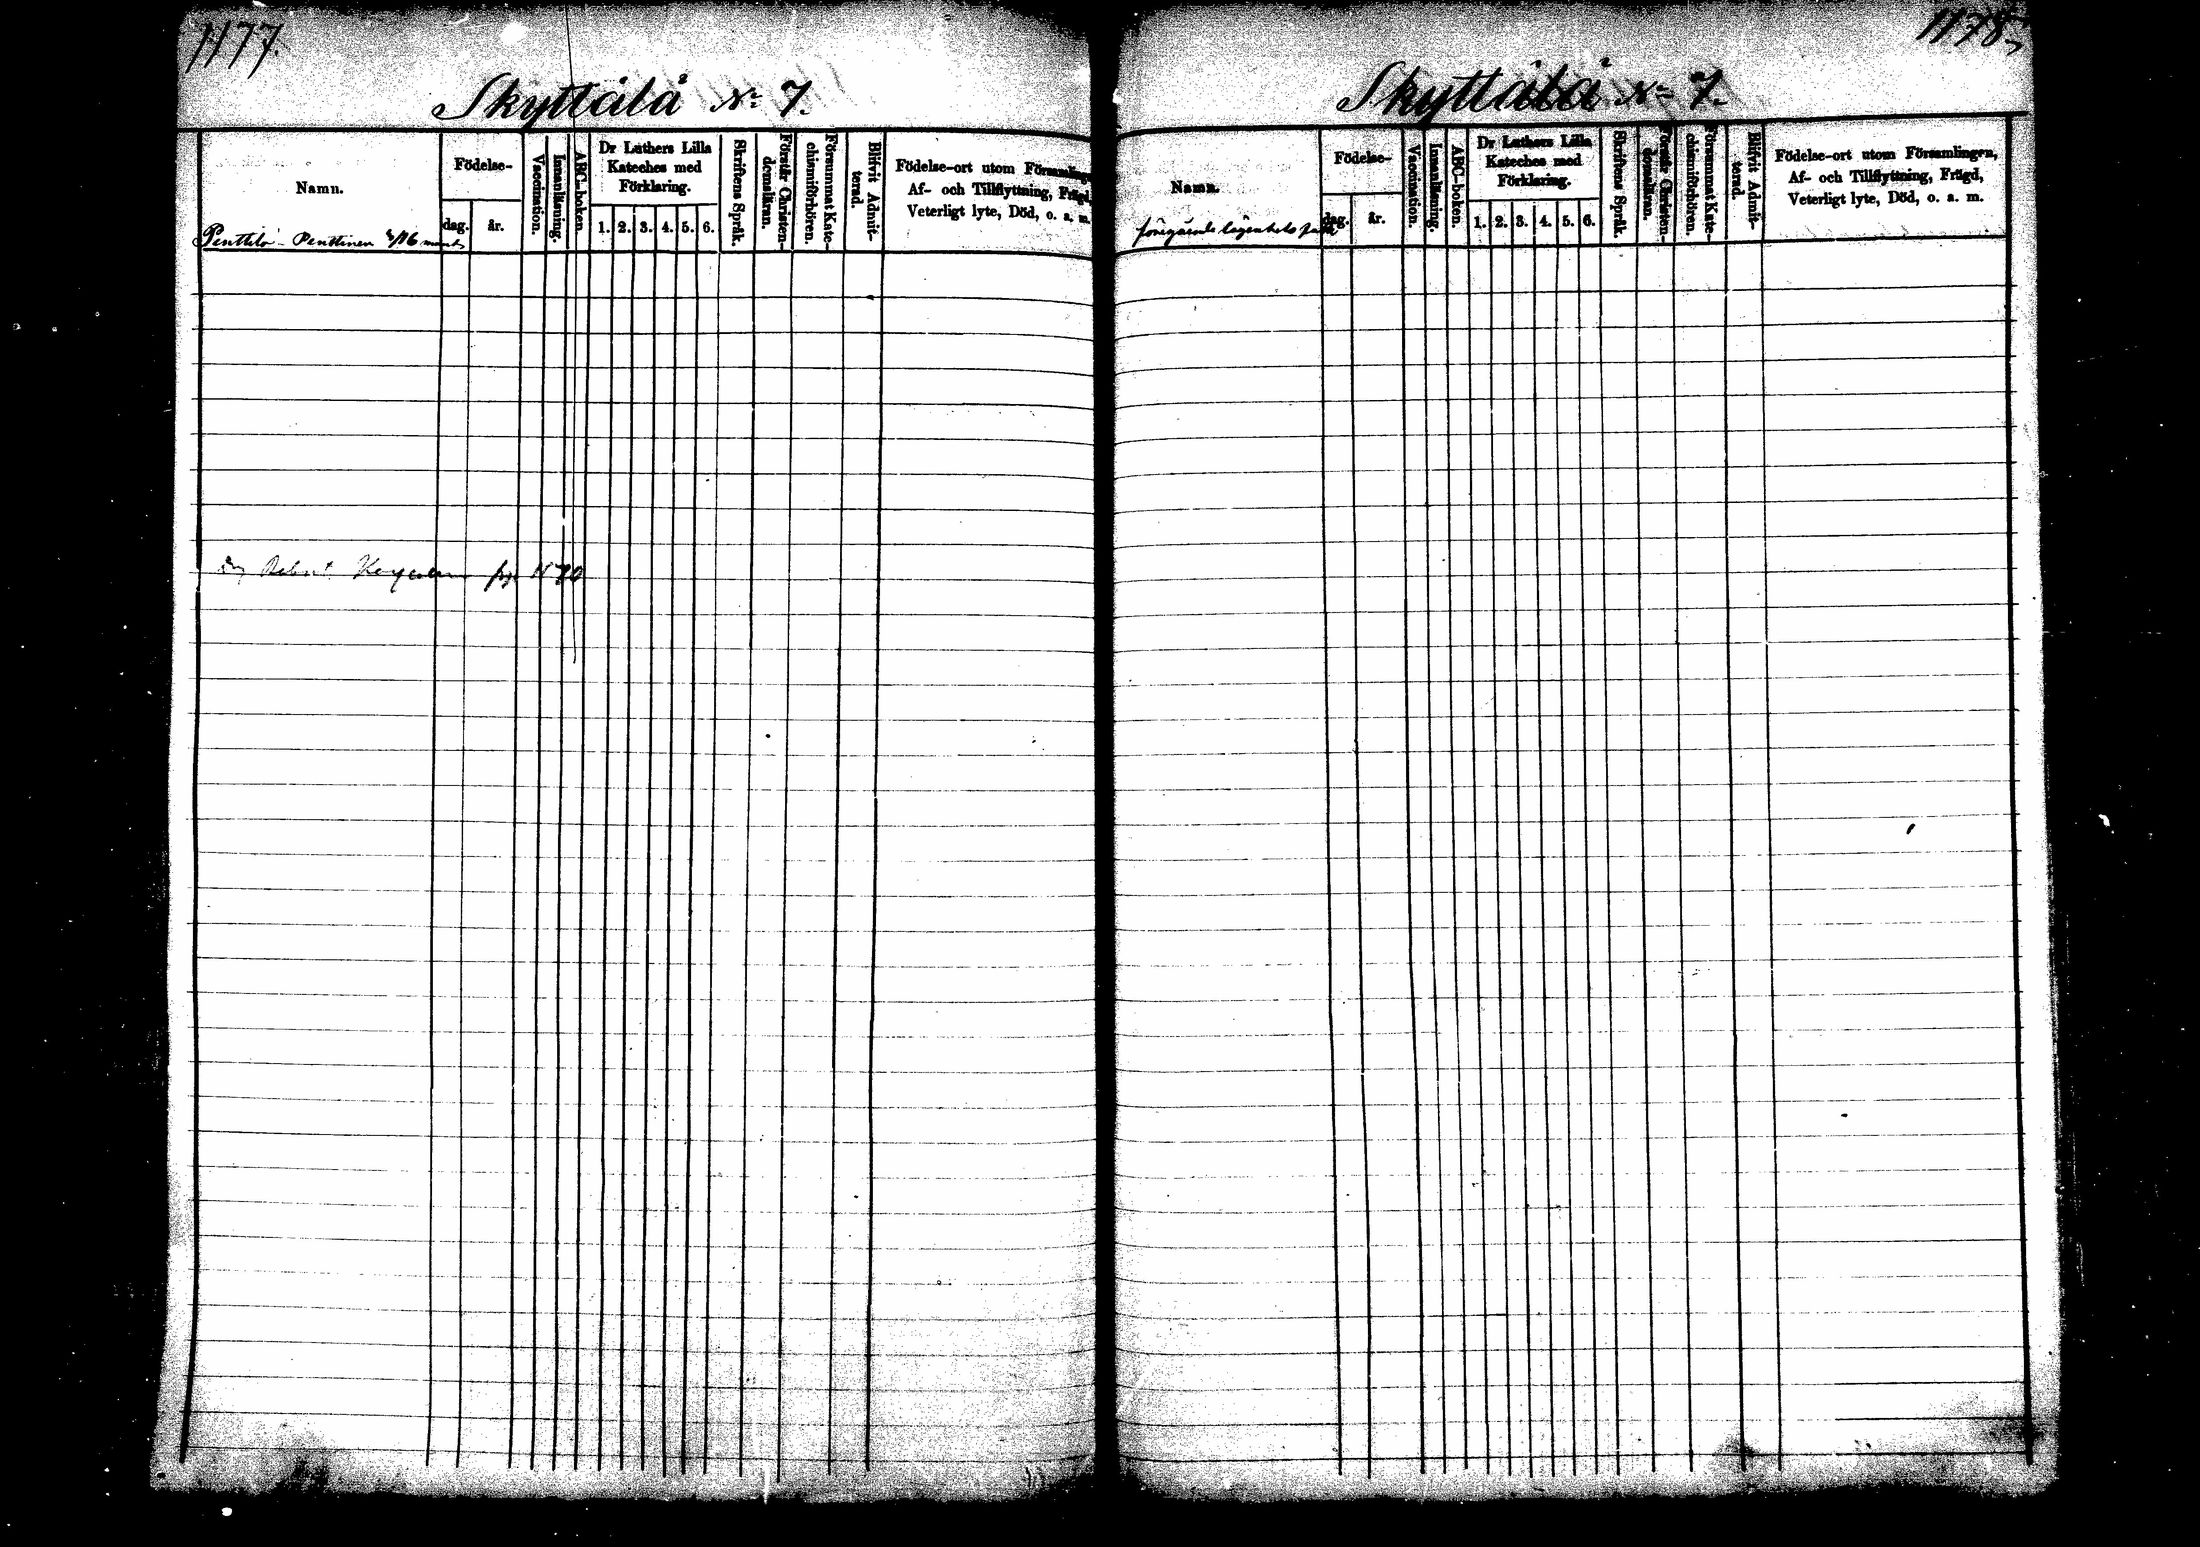 1177.
Skyttälä No 7.
Namn.
Födelse-
dag. år.
Vaccination.
Innanläsning.
ABC-boken.
Dr Luthers Lilla
Kateches med
Förklaring.
1. 2. 3. 4. 5. 6.
Skriftens Språk.
Förstår Christen-
domsläran.
Försummat Kate-
chismiförhören.
Blifvit Admit-
terad.
Födelse-ort utom Församlingen,
Af- och Tillflyttning, Frägd,
Veterligt lyte, Död, o. a. m.
Penttilä Penttinen 3/16
1178
Skyttälä No 7.
Namn.
Födelse-
dag. år.
Vaccination.
Innanläsning.
ABC-boken.
Dr Luthers Lilla
Kateches med
Förklaring.
1. 2. 3. 4. 5. 6.
Skriftens Språk.
Förstår Christen-
domsläran.
Försummat Kate-
chismiförhören.
Blifvit Admit-
terad.
Födelse-ort utom Församlingen,
Af- och Tillflyttning, Frägd,
Veterligt lyte, Död, o. a. m.
föregående lägenhets